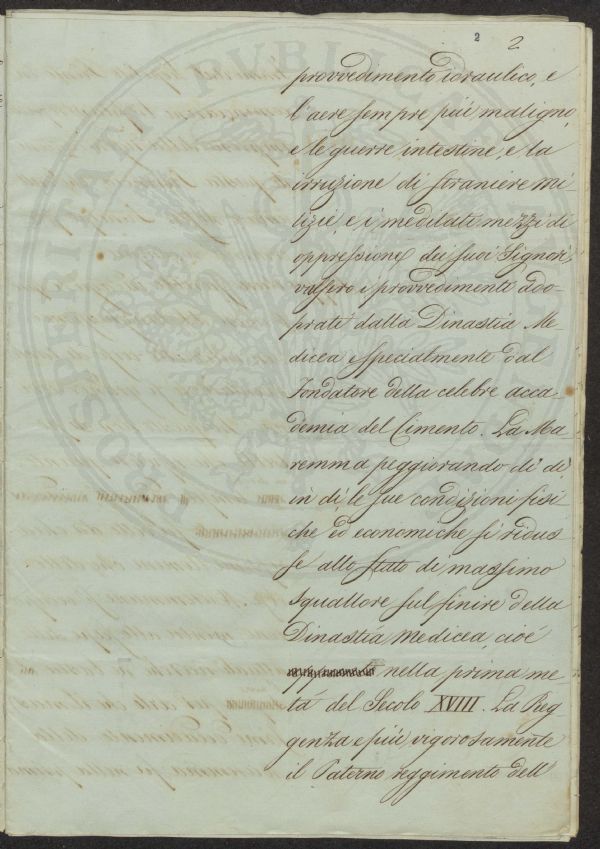 2 2
provvedimento idraulico, e
l'aere sempre più maligno,
e le guerre intestine, e la
irruzione di straniere mi
lizie, e i meditati mezzi di
oppressione dei suoi Signori,
i provvedimenti ado-
prati dalla Dinastia Me-
dicea e specialmente dal
Fondatore della celebre acca-
demia del Cimento. La Ma
remma peggiorando di dì
in dì, le sue condizioni fisi
che ed economiche si ridus
se allo stato di massimo
squallore sul finire della
Dinastia Medicea, cioè
nella prima me-
tá del Secolo XVIII. La Reg
genza e più vigorosamente
il Paterno reggimento dell
PROSPERITATI PVBLICAE